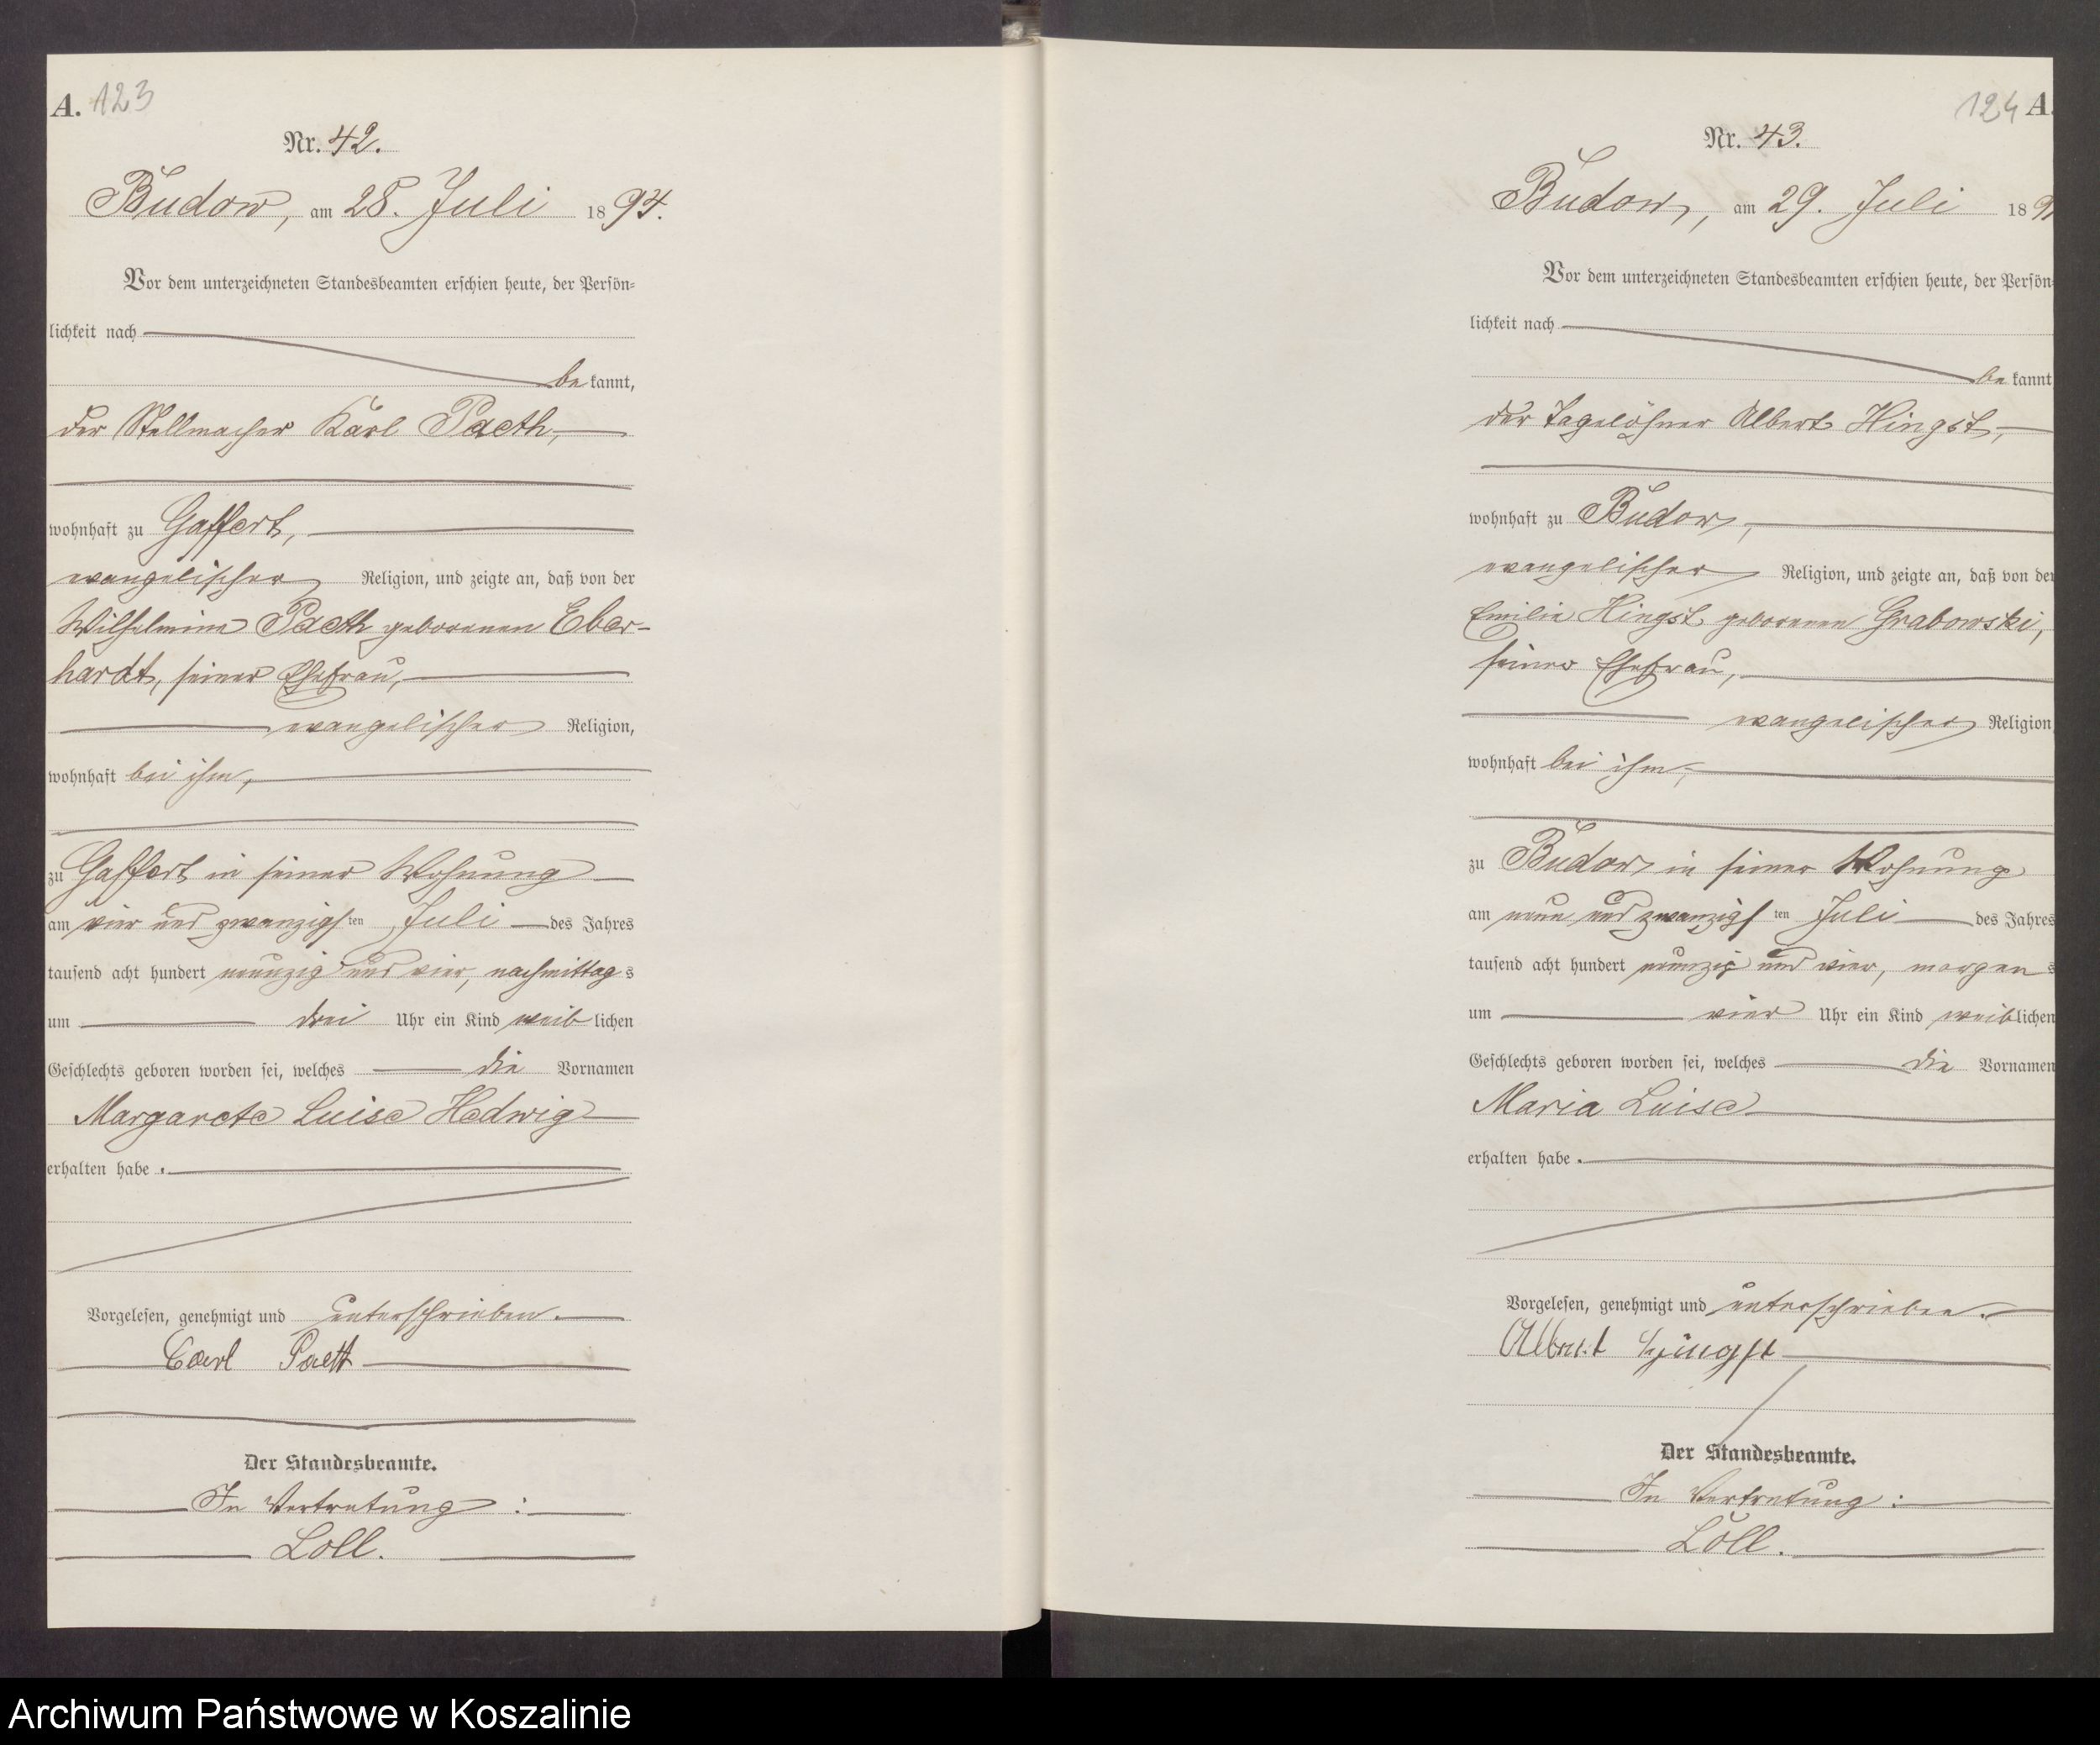 A. 123
Nr. 42.
Budow, am 28. Juli 1894.
Vor dem unterzeichneten Standesbeamten erschien heute, der Persön-
lichkeit nach
bekannt,
der Stellmacher Karl Paeth,
wohnhaft zu Gaffert,
evangelischer Religion, und zeigte an, daß von der
Wilhelmine Paeth geborenen Eber-
hardt, seiner Ehefrau,
evangelischer Religion,
wohnhaft bei ihm,
zu Gaffert in seiner Wohnung
am vier und zwanzigsten Juli des Jahres
tausend acht hundert neunzig und vier, nachmittags
um drei Uhr ein Kind weiblichen
Geschlechts geboren worden sei, welches die Vornamen
Margarete Luise Hedwig
erhalten habe.
Vorgelesen, genehmigt und unterschrieben.
Carl Paeth
Der Standesbeamte.
In Vertretung:
Loll.
124 A.
Nr. 43.
Budow, am 29. Juli 189
Vor dem unterzeichneten Standesbeamten erschien heute, der Persön-
lichkeit nach
bekannt
der Tagelöhner Albert Hingst,
wohnhaft zu Budow,
evangelischer Religion, und zeigte an, daß von der
Emilie Hingst geborenen Grabowski,
seiner Ehefrau,
evangelischer Religion
wohnhaft bei ihm,
zu Budow in seiner Wohnung
am neun und zwanzigsten Juli des Jahres
tausend acht hundert neunzig und vier, morgens
um vier Uhr ein Kind weiblichen
Geschlechts geboren worden sei, welches die Vornamen
Maria Luise
erhalten habe.
Vorgelesen, genehmigt und unterschrieben.
Albert Hingst
Der Standesbeamte.
In Vertretung:
Loll.
Archiwum Państwowe w Koszalinie